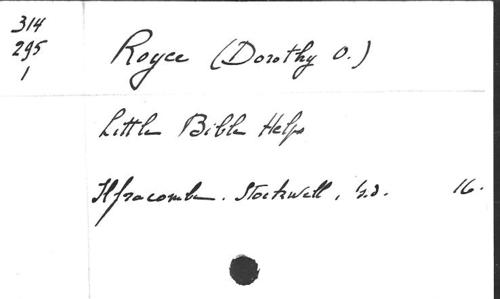 314
295
1
Royce (Dorothy O.)
Little Bible Helps
Ilfracombe. Stockwell, s.d. 16.